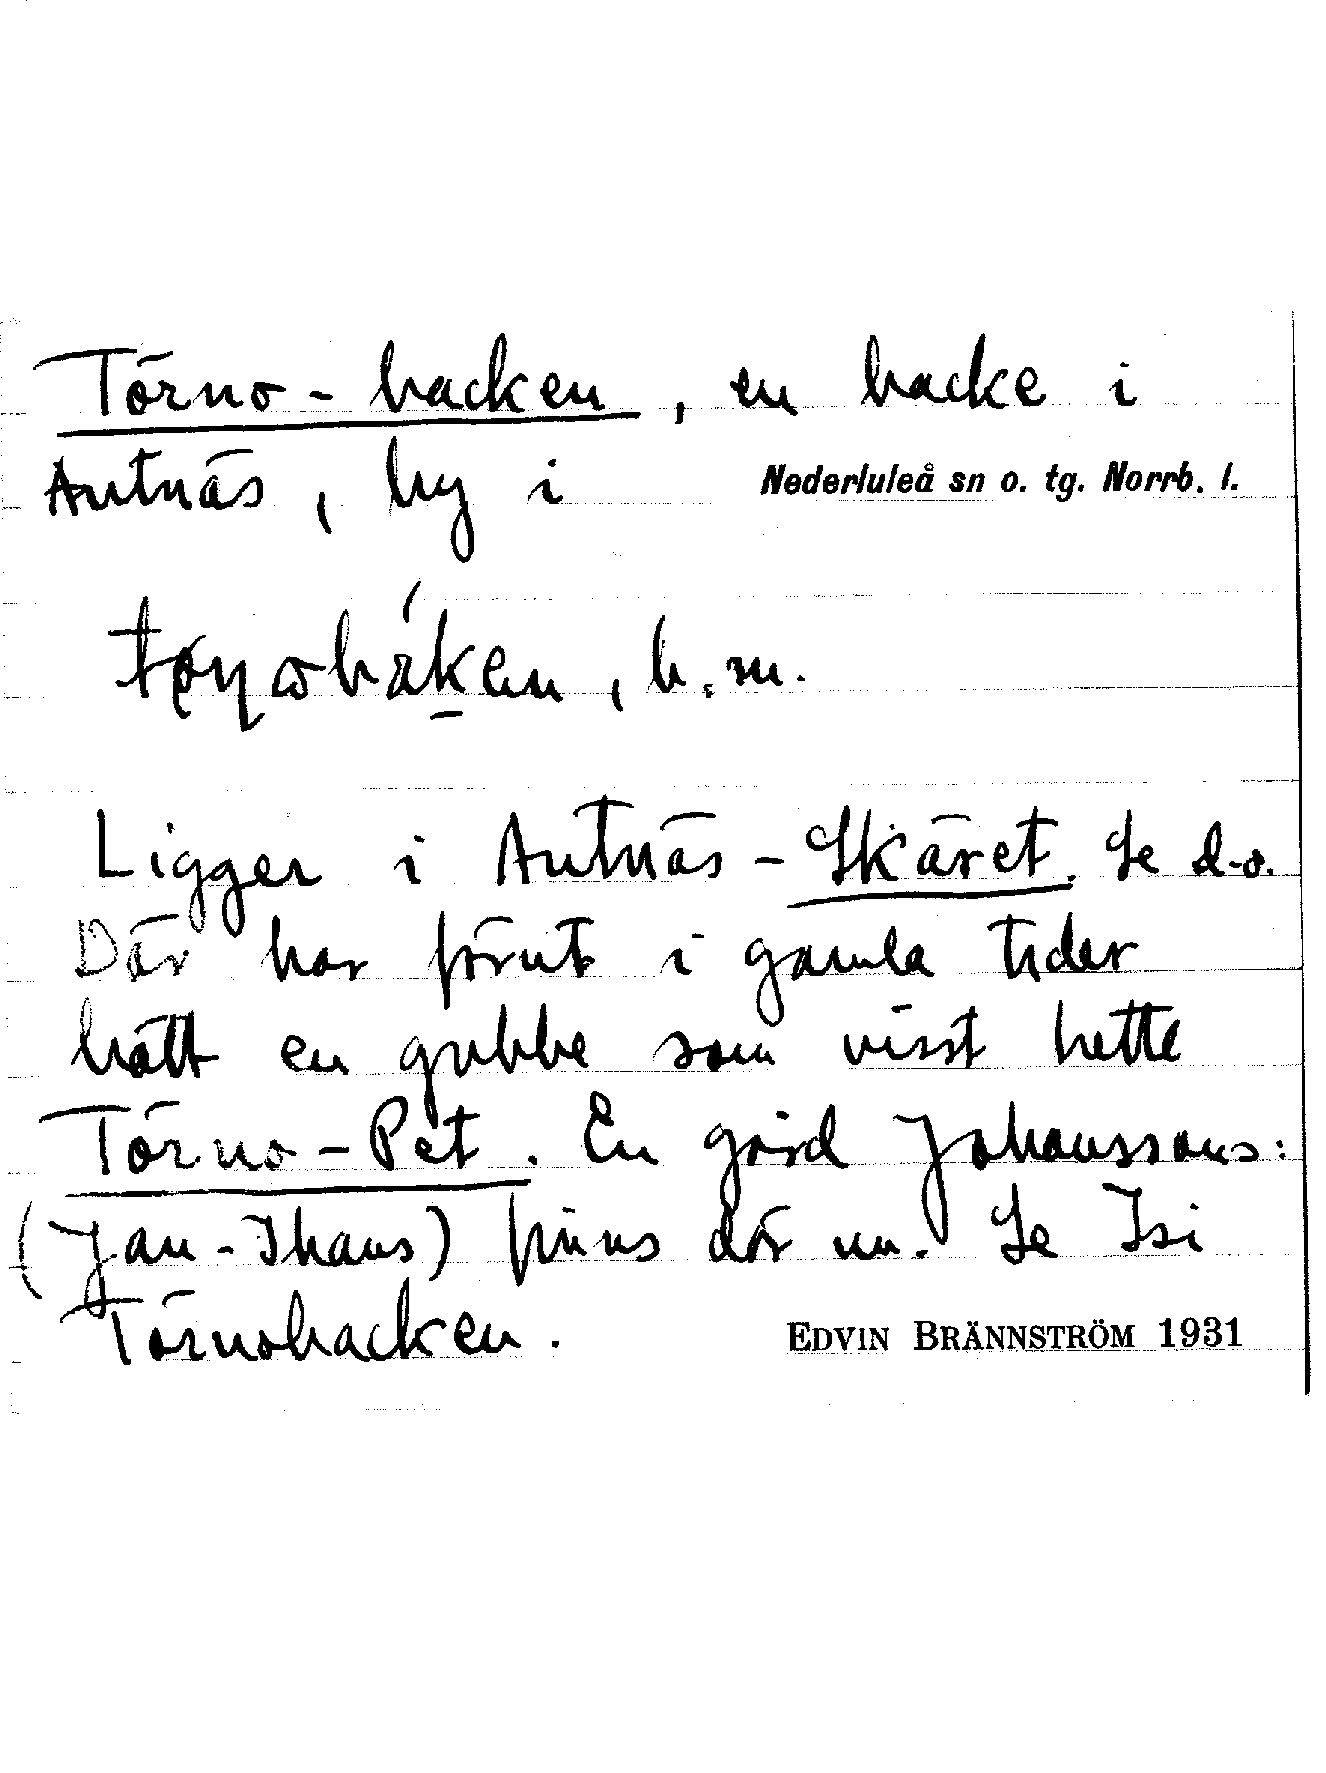 Törno-backen, en backe i
Antnäs, by i Nederluleå sn o. tg. Norrb. l.
b.m.
Ligger i Antnäs-Skäret. Se d.o.
Där har förut i gamla tider
bott en gubbe som visst hette
Törno-Pet. En gård Johanssons:
(Jan-Ihans) finns där nu. Se Isi
Törnobacken. EDVIN BRÄNNSTRÖM 1931